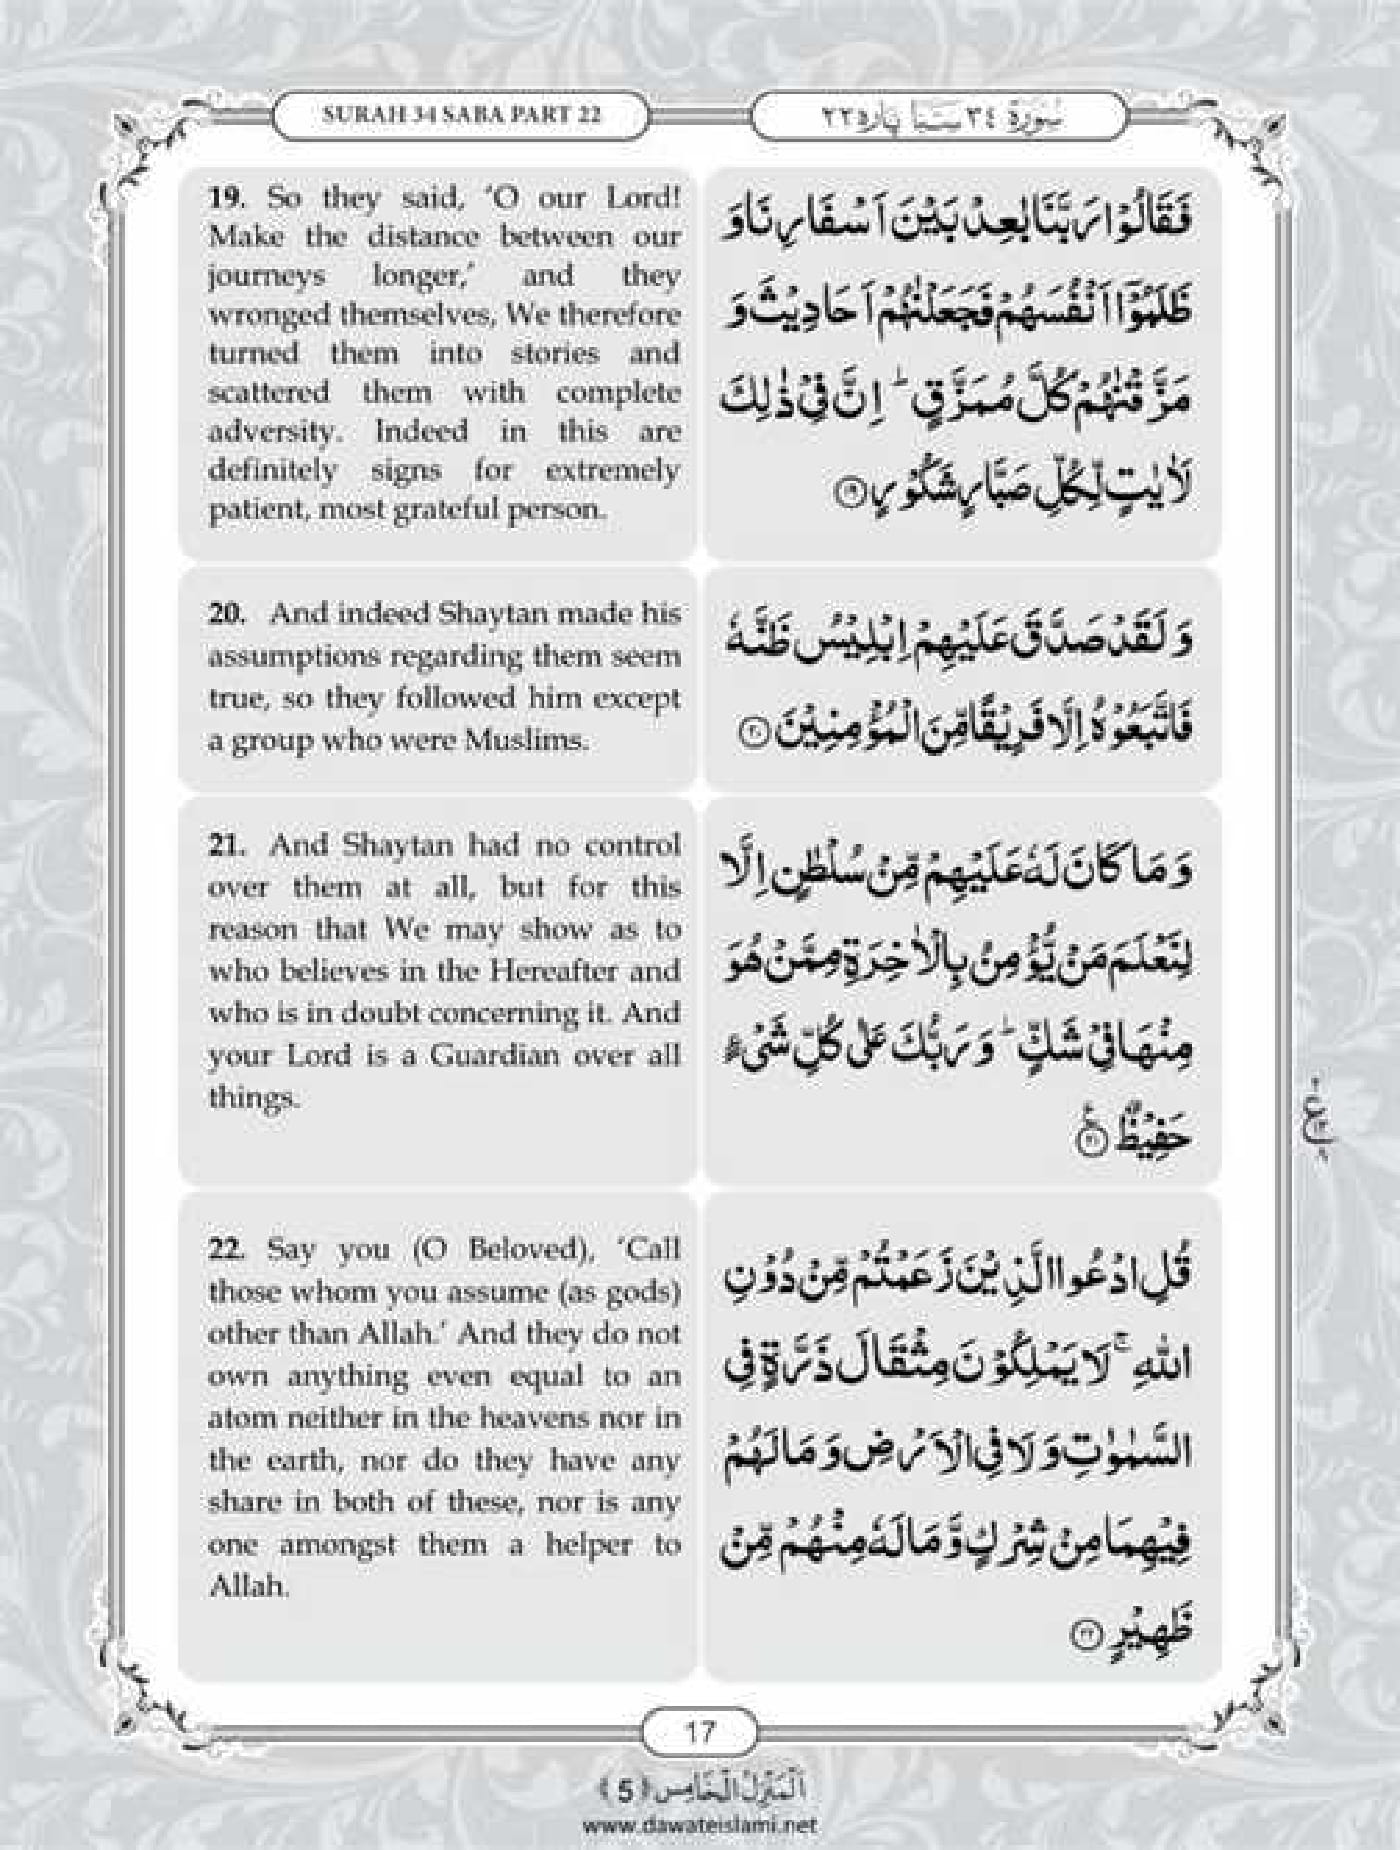 SURAH 34 SABA PART 22
سُوْرَةُ ٣٤ سَبَا پاره ٢٢
19. So they said, ‘O our Lord!
Make the distance between our
journeys longer,’ and they
wronged themselves, We therefore
turned them into stories and
scattered them with complete
adversity. Indeed in this are
definitely signs for extremely
patient, most grateful person.
فَقَالُوْا رَبَّنَا بٰعِدْ بَيْنَ اَسْفَارِنَا وَ
ظَلَمُوْۤا اَنْفُسَهُمْ فَجَعَلْنٰهُمْ اَحَادِيْثَ وَ
مَزَّقْنٰهُمْ كُلَّ مُمَزَّقٍ ؕ اِنَّ فِيْ ذٰلِكَ
لَاٰيٰتٍ لِّكُلِّ صَبَّارٍ شَكُوْرٍ ﴿١٩﴾
20. And indeed Shaytan made his
assumptions regarding them seem
true, so they followed him except
a group who were Muslims.
وَ لَقَدْ صَدَّقَ عَلَيْهِمْ اِبْلِيْسُ ظَنَّهٗ
فَاتَّبَعُوْهُ اِلَّا فَرِيْقًا مِّنَ الْمُؤْمِنِيْنَ ﴿٢٠﴾
21. And Shaytan had no control
over them at all, but for this
reason that We may show as to
who believes in the Hereafter and
who is in doubt concerning it. And
your Lord is a Guardian over all
things.
وَ مَا كَانَ لَهٗ عَلَيْهِمْ مِّنْ سُلْطٰنٍ اِلَّا
لِنَعْلَمَ مَنْ يُّؤْمِنُ بِالْاٰخِرَةِ مِمَّنْ هُوَ
مِنْهَا فِيْ شَكٍّ ؕ وَ رَبُّكَ عَلٰى كُلِّ شَيْءٍ
حَفِيْظٌ ﴿٢١﴾
22. Say you (O Beloved), ‘Call
those whom you assume (as gods)
other than Allah.’ And they do not
own anything even equal to an
atom neither in the heavens nor in
the earth, nor do they have any
share in both of these, nor is any
one amongst them a helper to
Allah.
قُلِ ادْعُوا الَّذِيْنَ زَعَمْتُمْ مِّنْ دُوْنِ
اللّٰهِ ۚ لَا يَمْلِكُوْنَ مِثْقَالَ ذَرَّةٍ فِي
السَّمٰوٰتِ وَ لَا فِي الْاَرْضِ وَ مَا لَهُمْ
فِيْهِمَا مِنْ شِرْكٍ وَّ مَا لَهٗ مِنْهُمْ مِّنْ
ظَهِيْرٍ ﴿٢٢﴾
17
اَلْمَنْزِلُ الْخَامِس ﴿5﴾
www.dawateislami.net